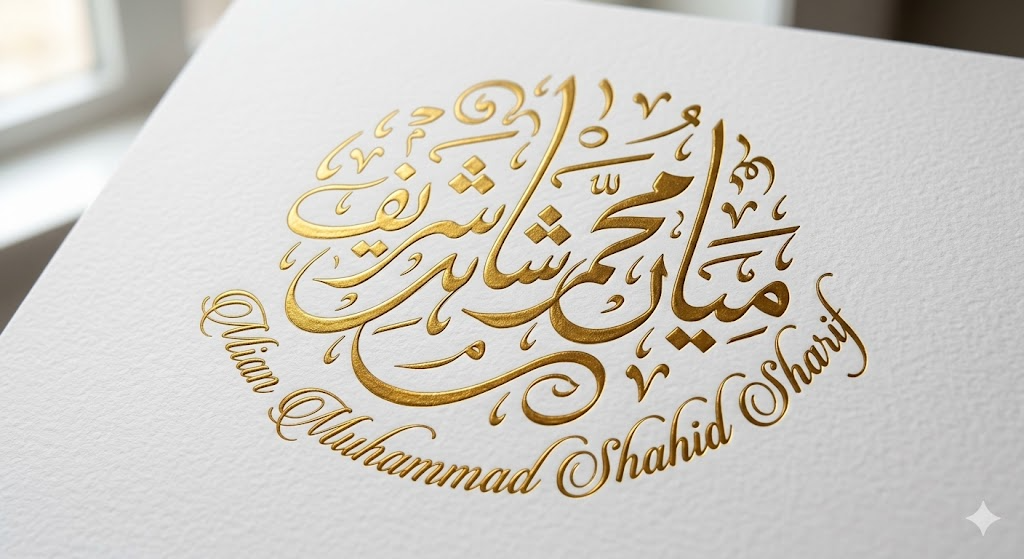 میاں محمد شاہد شریف
Mian Muhammad Shahid Sharif